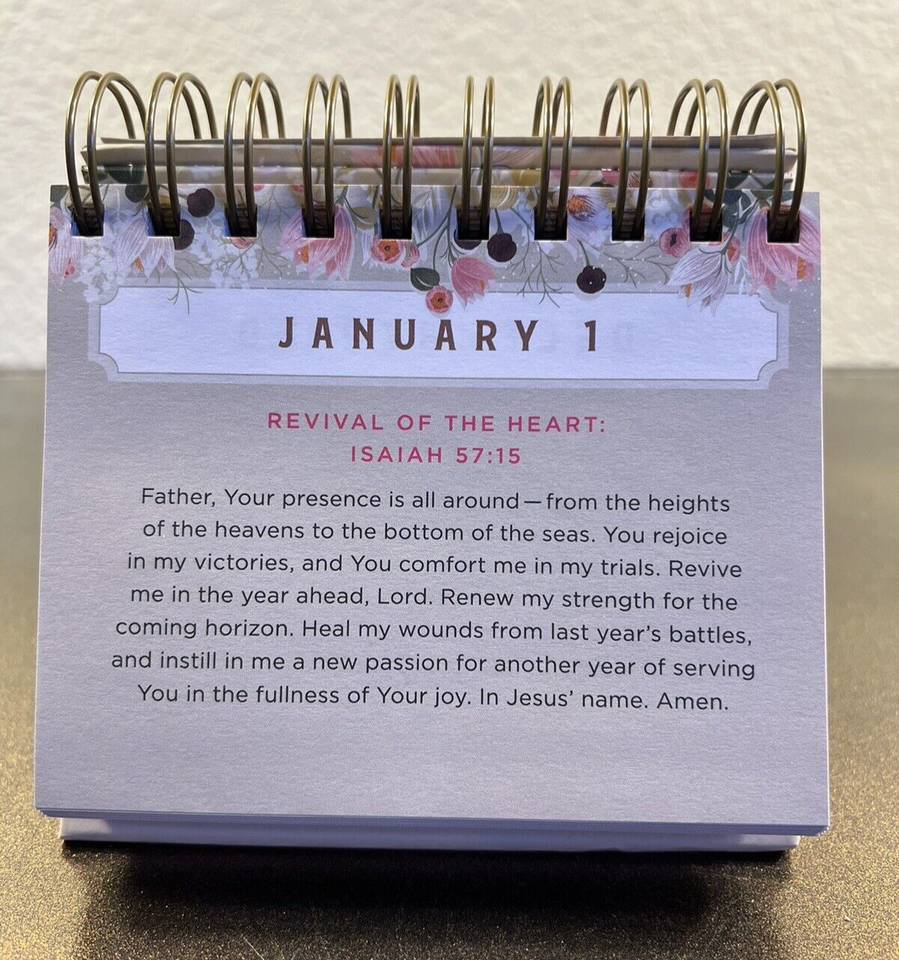 JANUARY 1
REVIVAL OF THE HEART:
ISAIAH 57:15
Father, Your presence is all around—from the heights
of the heavens to the bottom of the seas. You rejoice
in my victories, and You comfort me in my trials. Revive
me in the year ahead, Lord. Renew my strength for the
coming horizon. Heal my wounds from last year's battles,
and instill in me a new passion for another year of serving
You in the fullness of Your joy. In Jesus' name. Amen.